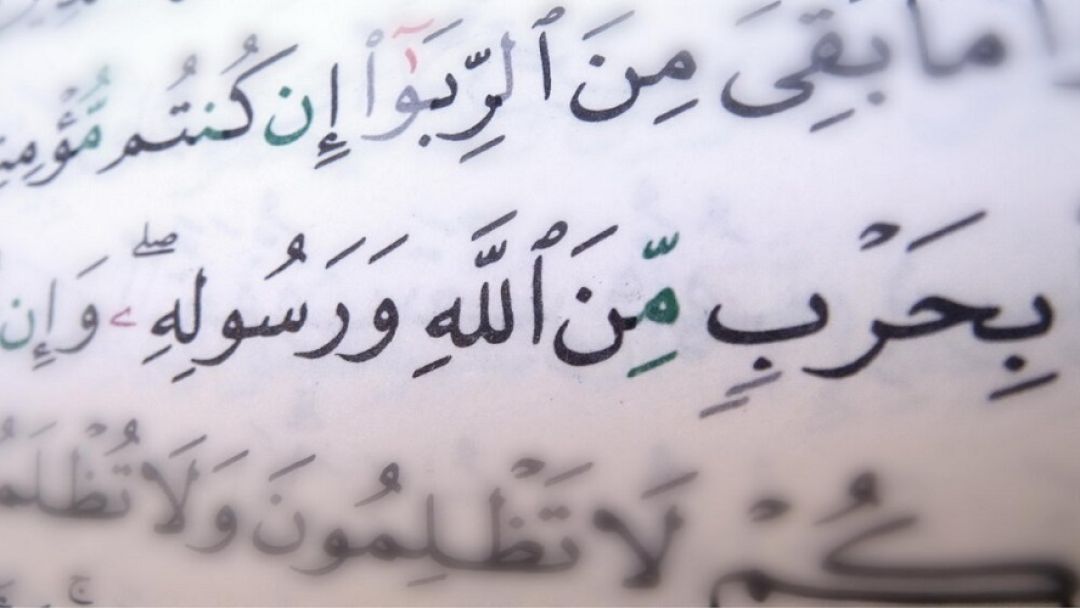 مَا بَقِىَ مِنَ ٱلرِّبَوٰٓا۟ إِن كُنتُم مُّؤْمِنِ
بِحَرْبٍ مِّنَ ٱللَّهِ وَرَسُولِهِۦۖ وَإِن
كُمْ لَا تَظْلِمُونَ وَلَا تُظْلَمُ